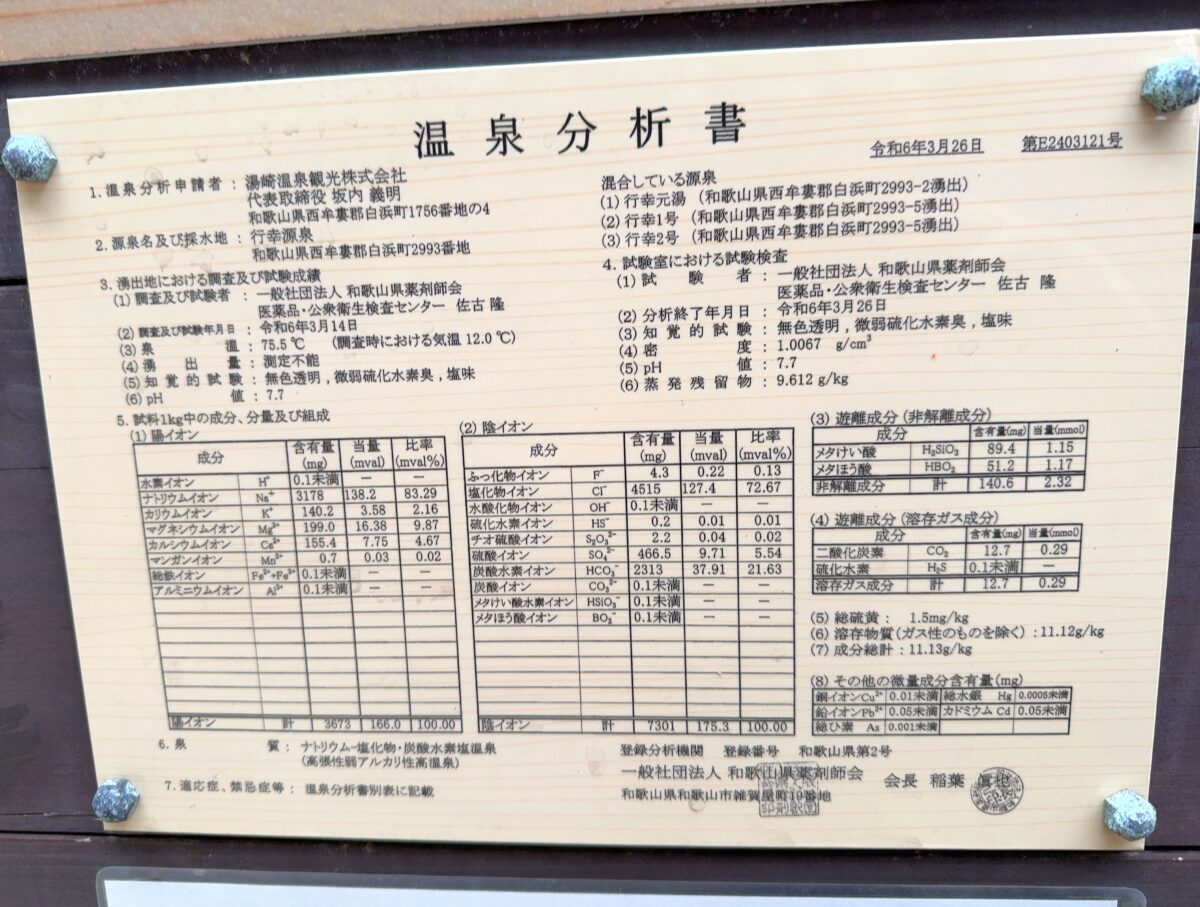 温泉分析書
令和6年3月26日 第E2403121号
1.温泉分析申請者 : 湯崎温泉観光株式会社
代表取締役 坂内 義明
和歌山県西牟婁郡白浜町1756番地の4
2.源泉名及び採水地 : 行幸源泉
和歌山県西牟婁郡白浜町2993番地
3.湧出地における調査及び試験成績
(1)調査及び試験者 : 一般社団法人 和歌山県薬剤師会
医薬品・公衆衛生検査センター 佐古 隆
(2)調査及び試験年月日 : 令和6年3月14日
(3)泉温 : 75.5 ℃ (調査時における気温 12.0 ℃)
(4)湧出量 : 測定不能
(5)知覚的試験 : 無色透明 , 微弱硫化水素臭 , 塩味
(6)pH値 : 7.7
混合している源泉
(1) 行幸元湯 (和歌山県西牟婁郡白浜町2993-2湧出)
(2) 行幸1号 (和歌山県西牟婁郡白浜町2993-5湧出)
(3) 行幸2号 (和歌山県西牟婁郡白浜町2993-5湧出)
4.試験室における試験検査
(1)試験者 : 一般社団法人 和歌山県薬剤師会
医薬品・公衆衛生検査センター 佐古 隆
(2)分析終了年月日 : 令和6年3月26日
(3)知覚的試験 : 無色透明 , 微弱硫化水素臭 , 塩味
(4)密度 : 1.0067 g/cm³
(5)pH値 : 7.7
(6)蒸発残留物 : 9.612 g/kg
5.試料1kg中の成分、分量及び組成
(1)陽イオン
成分 含有量(mg) 当量(mval) 比率(mval%)
水素イオン H⁺ 0.1未満 － －
ナトリウムイオン Na⁺ 3178 138.2 83.29
カリウムイオン K⁺ 140.2 3.58 2.16
マグネシウムイオン Mg²⁺ 199.0 16.38 9.87
カルシウムイオン Ca²⁺ 155.4 7.75 4.67
マンガンイオン Mn²⁺ 0.7 0.03 0.02
総鉄イオン Fe²⁺+Fe³⁺ 0.1未満 － －
アルミニウムイオン Al³⁺ 0.1未満 － －
陽イオン 計 3673 166.0 100.00
(2)陰イオン
成分 含有量(mg) 当量(mval) 比率(mval%)
ふっ化物イオン F⁻ 4.3 0.22 0.13
塩化物イオン Cl⁻ 4515 127.4 72.67
水酸化物イオン OH⁻ 0.1未満 － －
硫化水素イオン HS⁻ 0.2 0.01 0.01
チオ硫酸イオン S₂O₃²⁻ 2.2 0.04 0.02
硫酸イオン SO₄²⁻ 466.5 9.71 5.54
炭酸水素イオン HCO₃⁻ 2313 37.91 21.63
炭酸イオン CO₃²⁻ 0.1未満 － －
メタけい酸水素イオン HSiO₃⁻ 0.1未満 － －
メタほう酸イオン BO₂⁻ 0.1未満 － －
陰イオン 計 7301 175.3 100.00
(3) 遊離成分 (非解離成分)
成分 含有量(mg) 当量(mmol)
メタけい酸 H₂SiO₃ 89.4 1.15
メタほう酸 HBO₂ 51.2 1.17
非解離成分 計 140.6 2.32
(4) 遊離成分 (溶存ガス成分)
成分 含有量(mg) 当量(mmol)
二酸化炭素 CO₂ 12.7 0.29
硫化水素 H₂S 0.1未満 －
溶存ガス成分 計 12.7 0.29
(5) 総硫黄 : 1.5mg/kg
(6) 溶存物質(ガス性のものを除く) : 11.12g/kg
(7) 成分総計 : 11.13g/kg
(8) その他の微量成分含有量(mg)
銅イオンCu²⁺ 0.01未満 総水銀 Hg 0.0005未満
鉛イオンPb²⁺ 0.05未満 カドミウム Cd 0.05未満
総ひ素 As 0.001未満
6.泉質 : ナトリウム-塩化物・炭酸水素塩温泉
(高張性弱アルカリ性高温泉)
7.適応症、禁忌症等 ; 温泉分析書別表に記載
登録分析機関 登録番号 和歌山県第2号
一般社団法人 和歌山県薬剤師会 会長 稲葉 眞也
和歌山県和歌山市雑賀屋町19番地